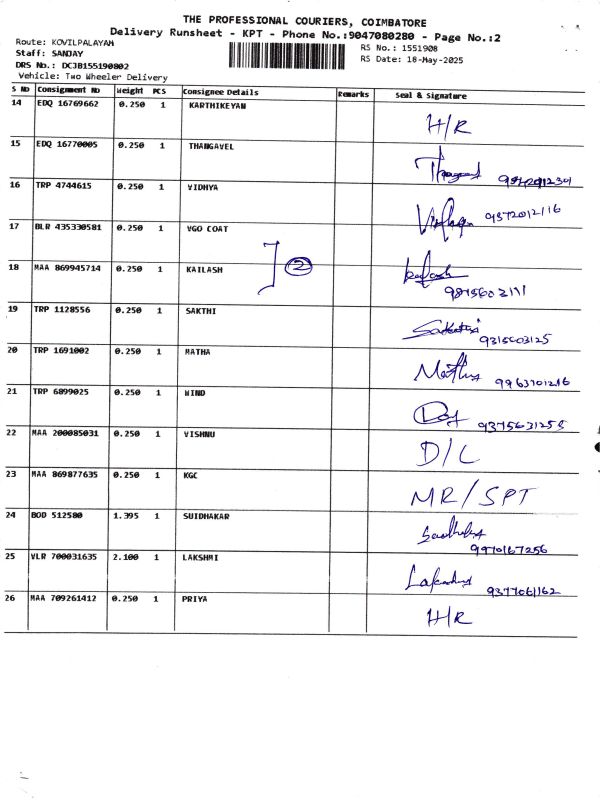 THE PROFESSIONAL COURIERS, COIMBATORE
Delivery Runsheet - KPT - Phone No.:9047080280 - Page No.:2
Route: KOVILPALAYAM
Staff: SANJAY
DRS No.: DCJB155190802
Vehicle: Two Wheeler Delivery
RS No.: 1551908
RS Date: 18-May-2025
S No Consignment No Weight PCS Consignee Details Remarks Seal & Signature
14 EDQ 16769662 0.250 1 KARTHIKEYAN H/R
15 EDQ 16770005 0.250 1 THANGAVEL
16 TRP 4744615 0.250 1 VIDHYA 9372012116
17 BLR 435330581 0.250 1 VGO COAT
18 MAA 869945714 0.250 1 KAILASH Kailash
2
19 TRP 1128556 0.250 1 SAKTHI Sakthi 9315603125
20 TRP 1691002 0.250 1 MATHA 9963701216
21 TRP 6899025 0.250 1 WIND 9375631255
22 MAA 200085031 0.250 1 VISHNU D/L
23 MAA 869877635 0.250 1 KGC MR/SPT
24 BOD 512580 1.395 1 SUIDHAKAR 9970167256
25 VLR 700031635 2.100 1 LAKSHMI 9377061162
26 MAA 709261412 0.250 1 PRIYA H/R